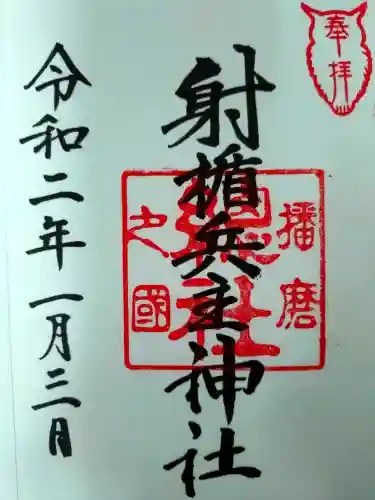 奉拝
播磨
之國
射楯兵主神社
令和二年一月三日